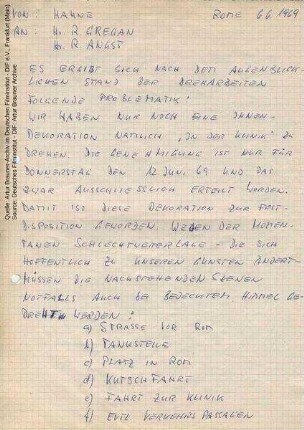 VON: HAHNE ROME 6.6.1969
AN: Hr. R. GREGAN
Hr. R. ANGST
ES ERGIBT SICH NACH DEM AUGENBLICK-
LICHEN STAND DER DREHARBEITEN
FOLGENDE PROBLEMATIK:
WIR HABEN NUR NOCH EINE INNEN-
DEKORATION NÄMLICH „IN DER KLINIK" ZU
DREHEN. DIE GENEHMIGUNG IST NUR FÜR
DONNERSTAG DEN 12. JUNI 69 UND DAS
ZWAR AUSSCHLIESSLICH ERTEILT WORDEN.
DAMIT IST DIESE DEKORATION ZUR FEST-
DISPOSITION GEWORDEN. WEGEN DER MOMEN-
TANEN SCHLECHTWETTERLAGE - DIE SICH
HOFFENTLICH ZU UNSEREN GUNSTEN ÄNDERT -
MÜSSEN DIE NACHSTEHENDEN SZENEN
NOTFALLS AUCH BEI BEDECKTEM HIMMEL GE-
DREHT WERDEN:
a) STRASSE VOR ROM
b) TANKSTELLE
c) PLATZ IN ROM
d) KUTSCHFAHRT
e) FAHRT ZUR KLINIK
f) EVTL. VERKEHRS PASSAGEN
Quelle: Artur Brauner-Archiv im Deutschen Filminstitut - DIF e.V., Frankfurt (Main)
Source: Deutsches Filminstitut - DIF, Artur Brauner Archive